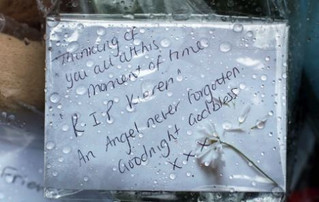 Thinking of
you all at this
moment of time
"R.I.P Kieren"
An Angel never forgotten
Goodnight Godbless
x x x